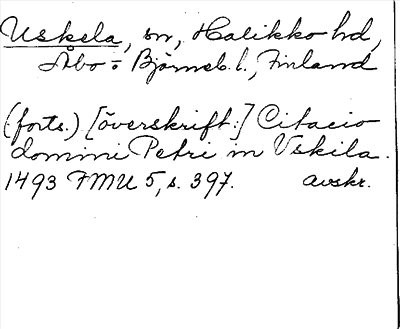 Uskela, sn, Halikko hd,
Åbo- o Björneb. l., Finland
(forts.) [överskrift:] Citacio
domini Petri in Vskila.
1493 FMU 5, s. 397. avskr.